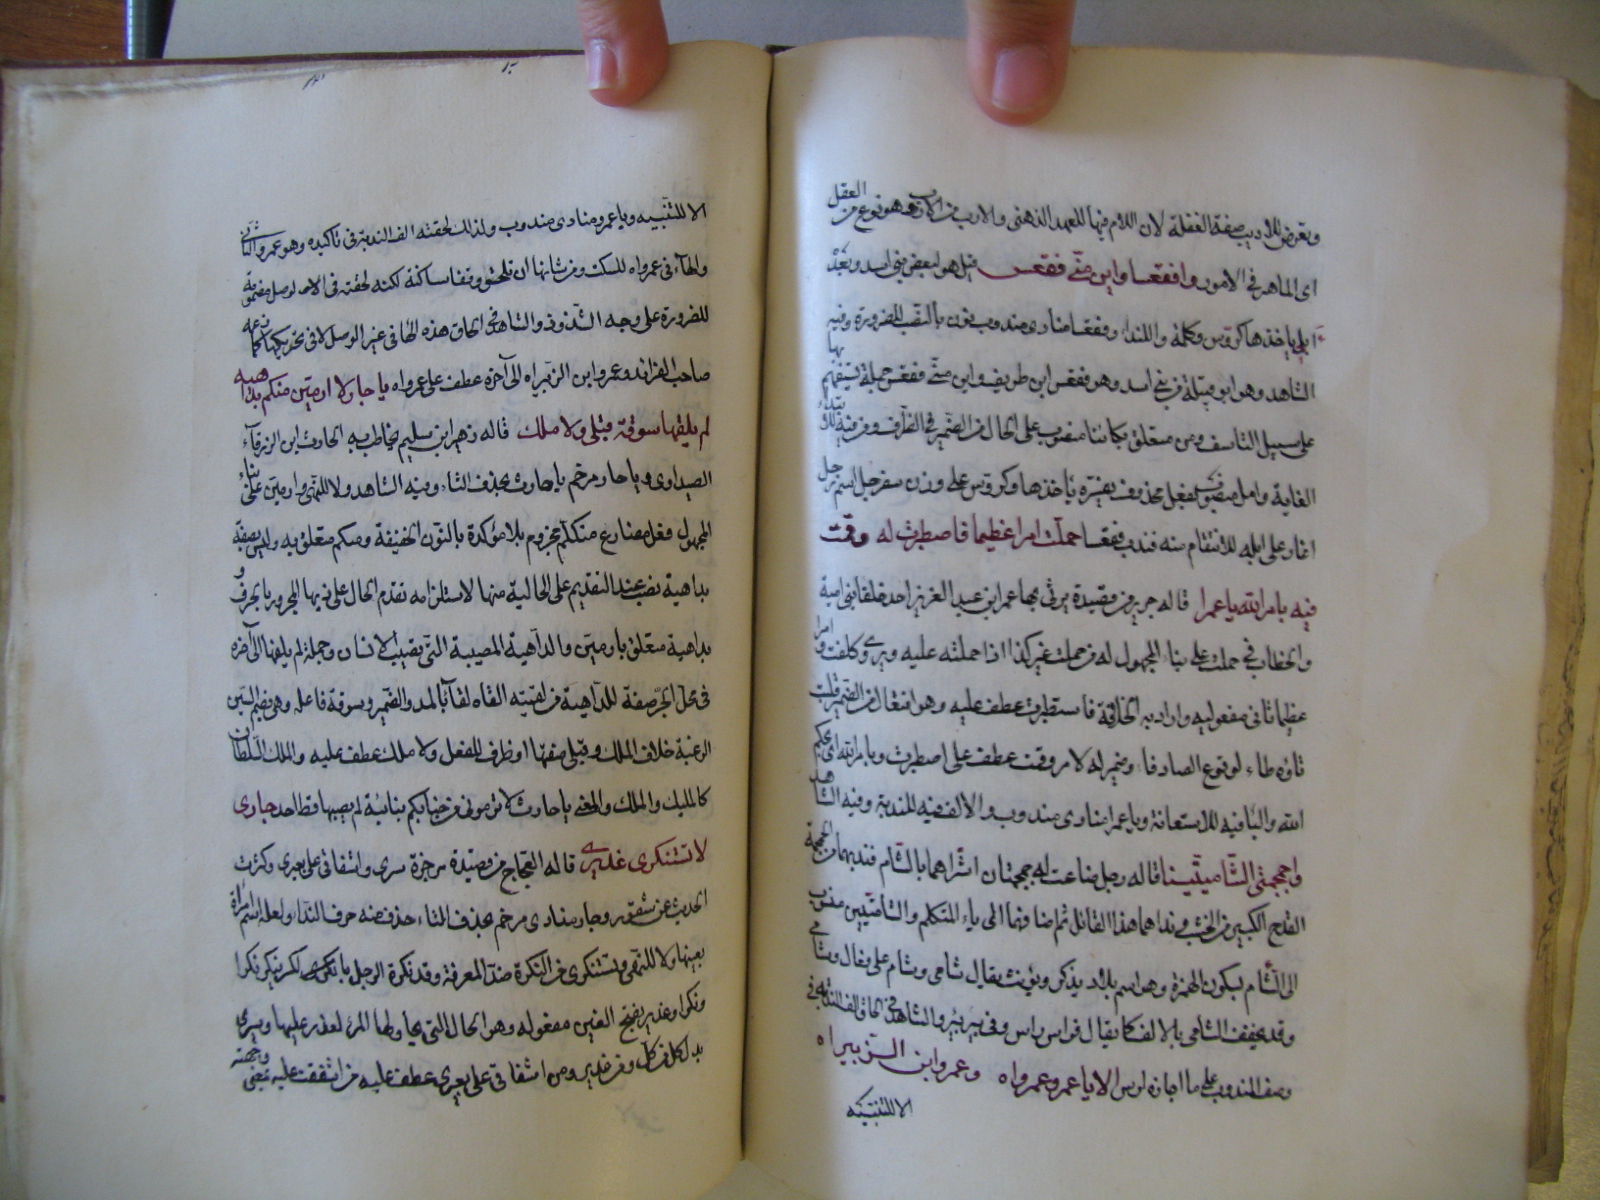 وتعوض للاديب صفة الغفلة لان اللام فيها للعهد الذهني والاديب من الادب وهو نوع من العقل
اى الماهر في الامور وافقعسا واين منّي فقعس قيل هو لبعض بني اسد وبعده
ابلي ياخذها كروّس وكلمة وا للندا وفقعسا منادى مندوب نون بالنصب للضرورة وفيه
الشاهد وهو ابو قبيلة من بني اسد وهو فقعس ابن طريف واين منّي فقعس جملة يستفهم بها
على سبيل التاسف ومن متعلق بكائنا منصوب على الحال من الضمير في الظرف ومن فيه لابتداء
الغاية وابل منصوب بفعل محذوف يفسره يأخذها وكروّس على وزن سفرجل اسم رجل
اغار على ابله للانتقام منه فندب فقعسا حملت امرا عظيما فاصطبرت له وقمت
فيه بامر الله يا عمرا قاله جرير من قصيدة يرثى بها عمر ابن عبد العزيز احد خلفا بنى امية
والخطاب في حملت على بناء المجهول له من حملت غير كذا اذا حملته عليه ويروى وكلفت وامرا
عظيما ثانى مفعوليه واراد به الخلافة فاصطبرت عطف عليه وهو افتعال من الصبر قلبت
تاؤه طاء لوقوع الصاد فا وضمير له لامر وقمت عطف على اصطبرت وبامر الله اى بحكم
الله والبا فيه للاستعانة ويا عمرا منادى مندوب والالف فيه للندبة وفيه الشاهد
واجمجمتى الشاميتينا قاله رجل ضاعت له جمجمتان اشتراهما بالشام فندبهما والجمجمة
القدح الكبير من الخشب وندا هما هذا القائل ثم اضافهما الى ياء المتكلم والشاميتين منسوب
الى الشام بسكون الهمزة وهو اسم بلاد يذكر ويؤنث يقال شامى وشام على فعال وشامى
وقد يخفف الشامى بالالف كما يقال فى راس راس وفى بير بير والشاهد في الحاق الف الندبة في
وصف المندوب على ما اجازه يونس الا يا عمرو عمرواه وعمرو ابن الزبيراه
الا للتنبيه
الا للتنبيه ويا عمرو منادى مندوب ولذلك لحقته الف الندبة في تاكيده وهو عمرو الثانى
والهاء فى عمرواه للسكت ومن شانها ان تلحق وقفا ساكنة لكنه لحقته فى الوصل مضمومة
للضرورة على وجه الشذوذ والشاهد في الحاق هذه الها في غير الوصل لا في تحريكها كما زعمه
صاحب الفرائد وعمرو ابن الزبيراه الى آخره عطف على عمرواه يا حار لا ارمين منكم بداهية
لم يلقها سوقة قبلى ولا ملك قاله زهير ابن سليم يخاطب به الحارث ابن الزرقاء
الصيداوى ويا حار مرخم يا حارث بحذف الثاء وفيه الشاهد ولا للنهى وارمين على بناء
المجهول فعل مضارع متكلم مجزوم بلا مؤكدة بالنون الخفيفة ومنكم متعلق به وليس بصفة
بداهية نصب عند التقديم على الحالية منها لاستلزامه تقدم الحال على ذيها المجرور بالحرف و
بداهية متعلق بارمين والداهية المصيبة التى تصيب الانسان وجملة لم يلقها الى آخره
فى محل الجر صفة للداهية من لقيته القاه لقاء بالمد والضمير وسوقة فاعله وهى بضم السين
الرعية خلاف الملك وقبلى صفتها او ظرف للفعل ولا ملك عطف عليه والملك السلطان
كالمليك والملك والمعنى يا حارث لا ترمونى من جنابكم بنائبة لم يصبها قط احد جارى
لا تستنكرى عذيرى قاله العجاج من قصيدة مرجزة سرى واشفاقى على بعيرى وكثرت
الحديث عن شقورى وجار منادى مرخم بحذف التاء حذف منه حرف الندا ولعله اسم امرأة
بعينها ولا للنهى وتستنكرى من النكرة ضد المعرفة وقد نكرت الرجل بالكسر نكرا
ونكرا وعذير بفتح العين مفعوله وهو الحال التى يحاولها المرء لعذر عليها وسيرى
بدل كل من كل ومن عذيرى ومن اشفاقى على بعيرى عطف عليه من اشفقت عليه بمعنى